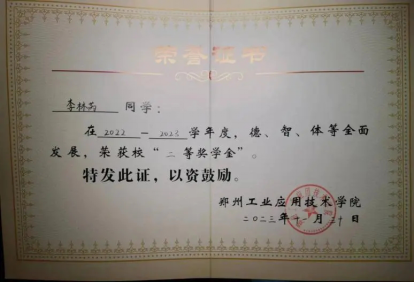 荣誉证书
李林芮 同学：
在 2022 - 2023 学年度，德、智、体等全面
发展，荣获校“二等奖学金”。
特发此证，以资鼓励。
郑州工业应用技术学院
二〇二三年十一月三十日